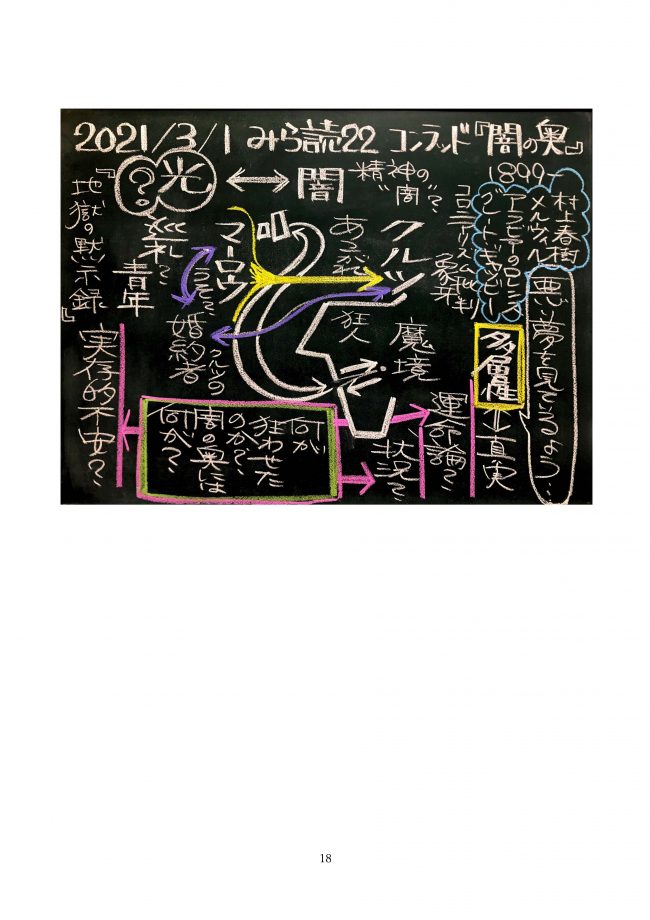 2021/3/1 みら読22 コンラッド『闇の奥』
1899-
村上春樹
メルヴィル
アラビアのロレンス
グレートギャツビー
コロニアリズム批判
象牙
精神の
"闇"?
光
?
闇
『地獄の黙示録』
巡礼?
青年
マーロウ
うそ?
クルツの
婚約者
あこがれ
クルツ
狂人
魔境
悪い夢を見ているよう…
多層性
真実
運命論?
状況?
何が
狂わせた
のか?
闇の奥には
何が?
実存的不安?
18